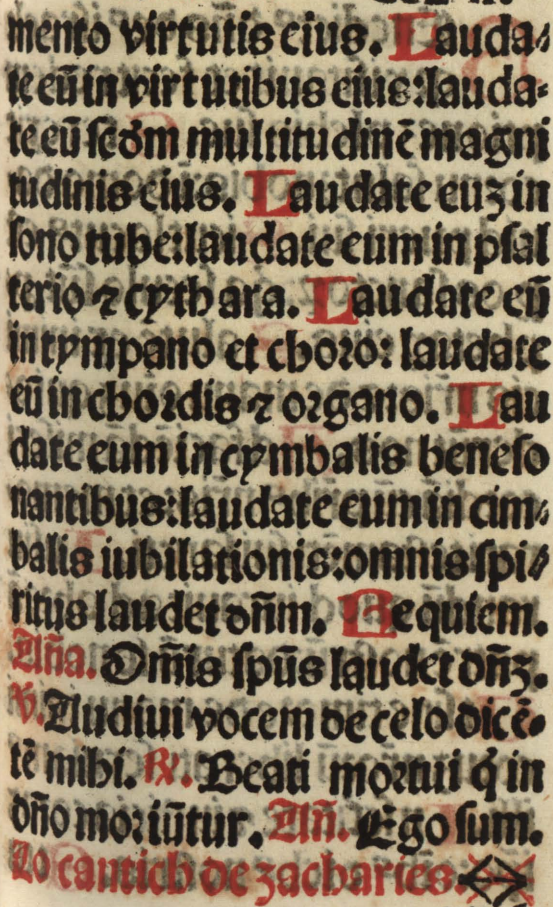 mento virtutis eius. Lauda⸗
te eū in virtutibus eius: lauda⸗
te eū scḋm multitudinē magni
tudinis eius. Laudate euʒ in
sono tube: laudate eum in psal
terio ⁊ cythara. Laudate eū
in tympano et choro: laudate
eū in chordis ⁊ organo. Lau
date eum in cymbalis beneso
nantibus: laudate eum in cim⸗
balis iubilationis: omnis spi⸗
ritus laudet dñm. Requiem.
Aña. Om̃is spũs laudet dñʒ.
℣. Audiui vocem de celo dicē⸗
tē mihi. ℟. Beati mortui q̇ in
dño moriūtur. Añ. Ego sum.
Lo cantich de zacharies.